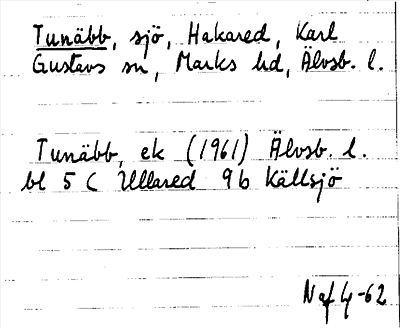 Tunäbb, sjö, Hakared, Karl
Gustavs sn, Marks hd, Älvsb. l.
Tunäbb, ek (1961) Älvsb. l.
bl 5 C Ullared 9 b Källsjö
-62